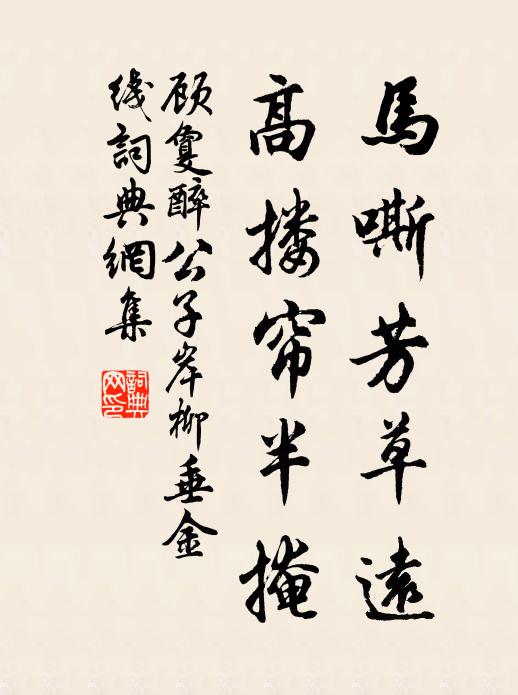 馬嘶芳草遠
高搂帘半掩
顾敻醉公子岸柳垂金
线詞典網集
詞典网印